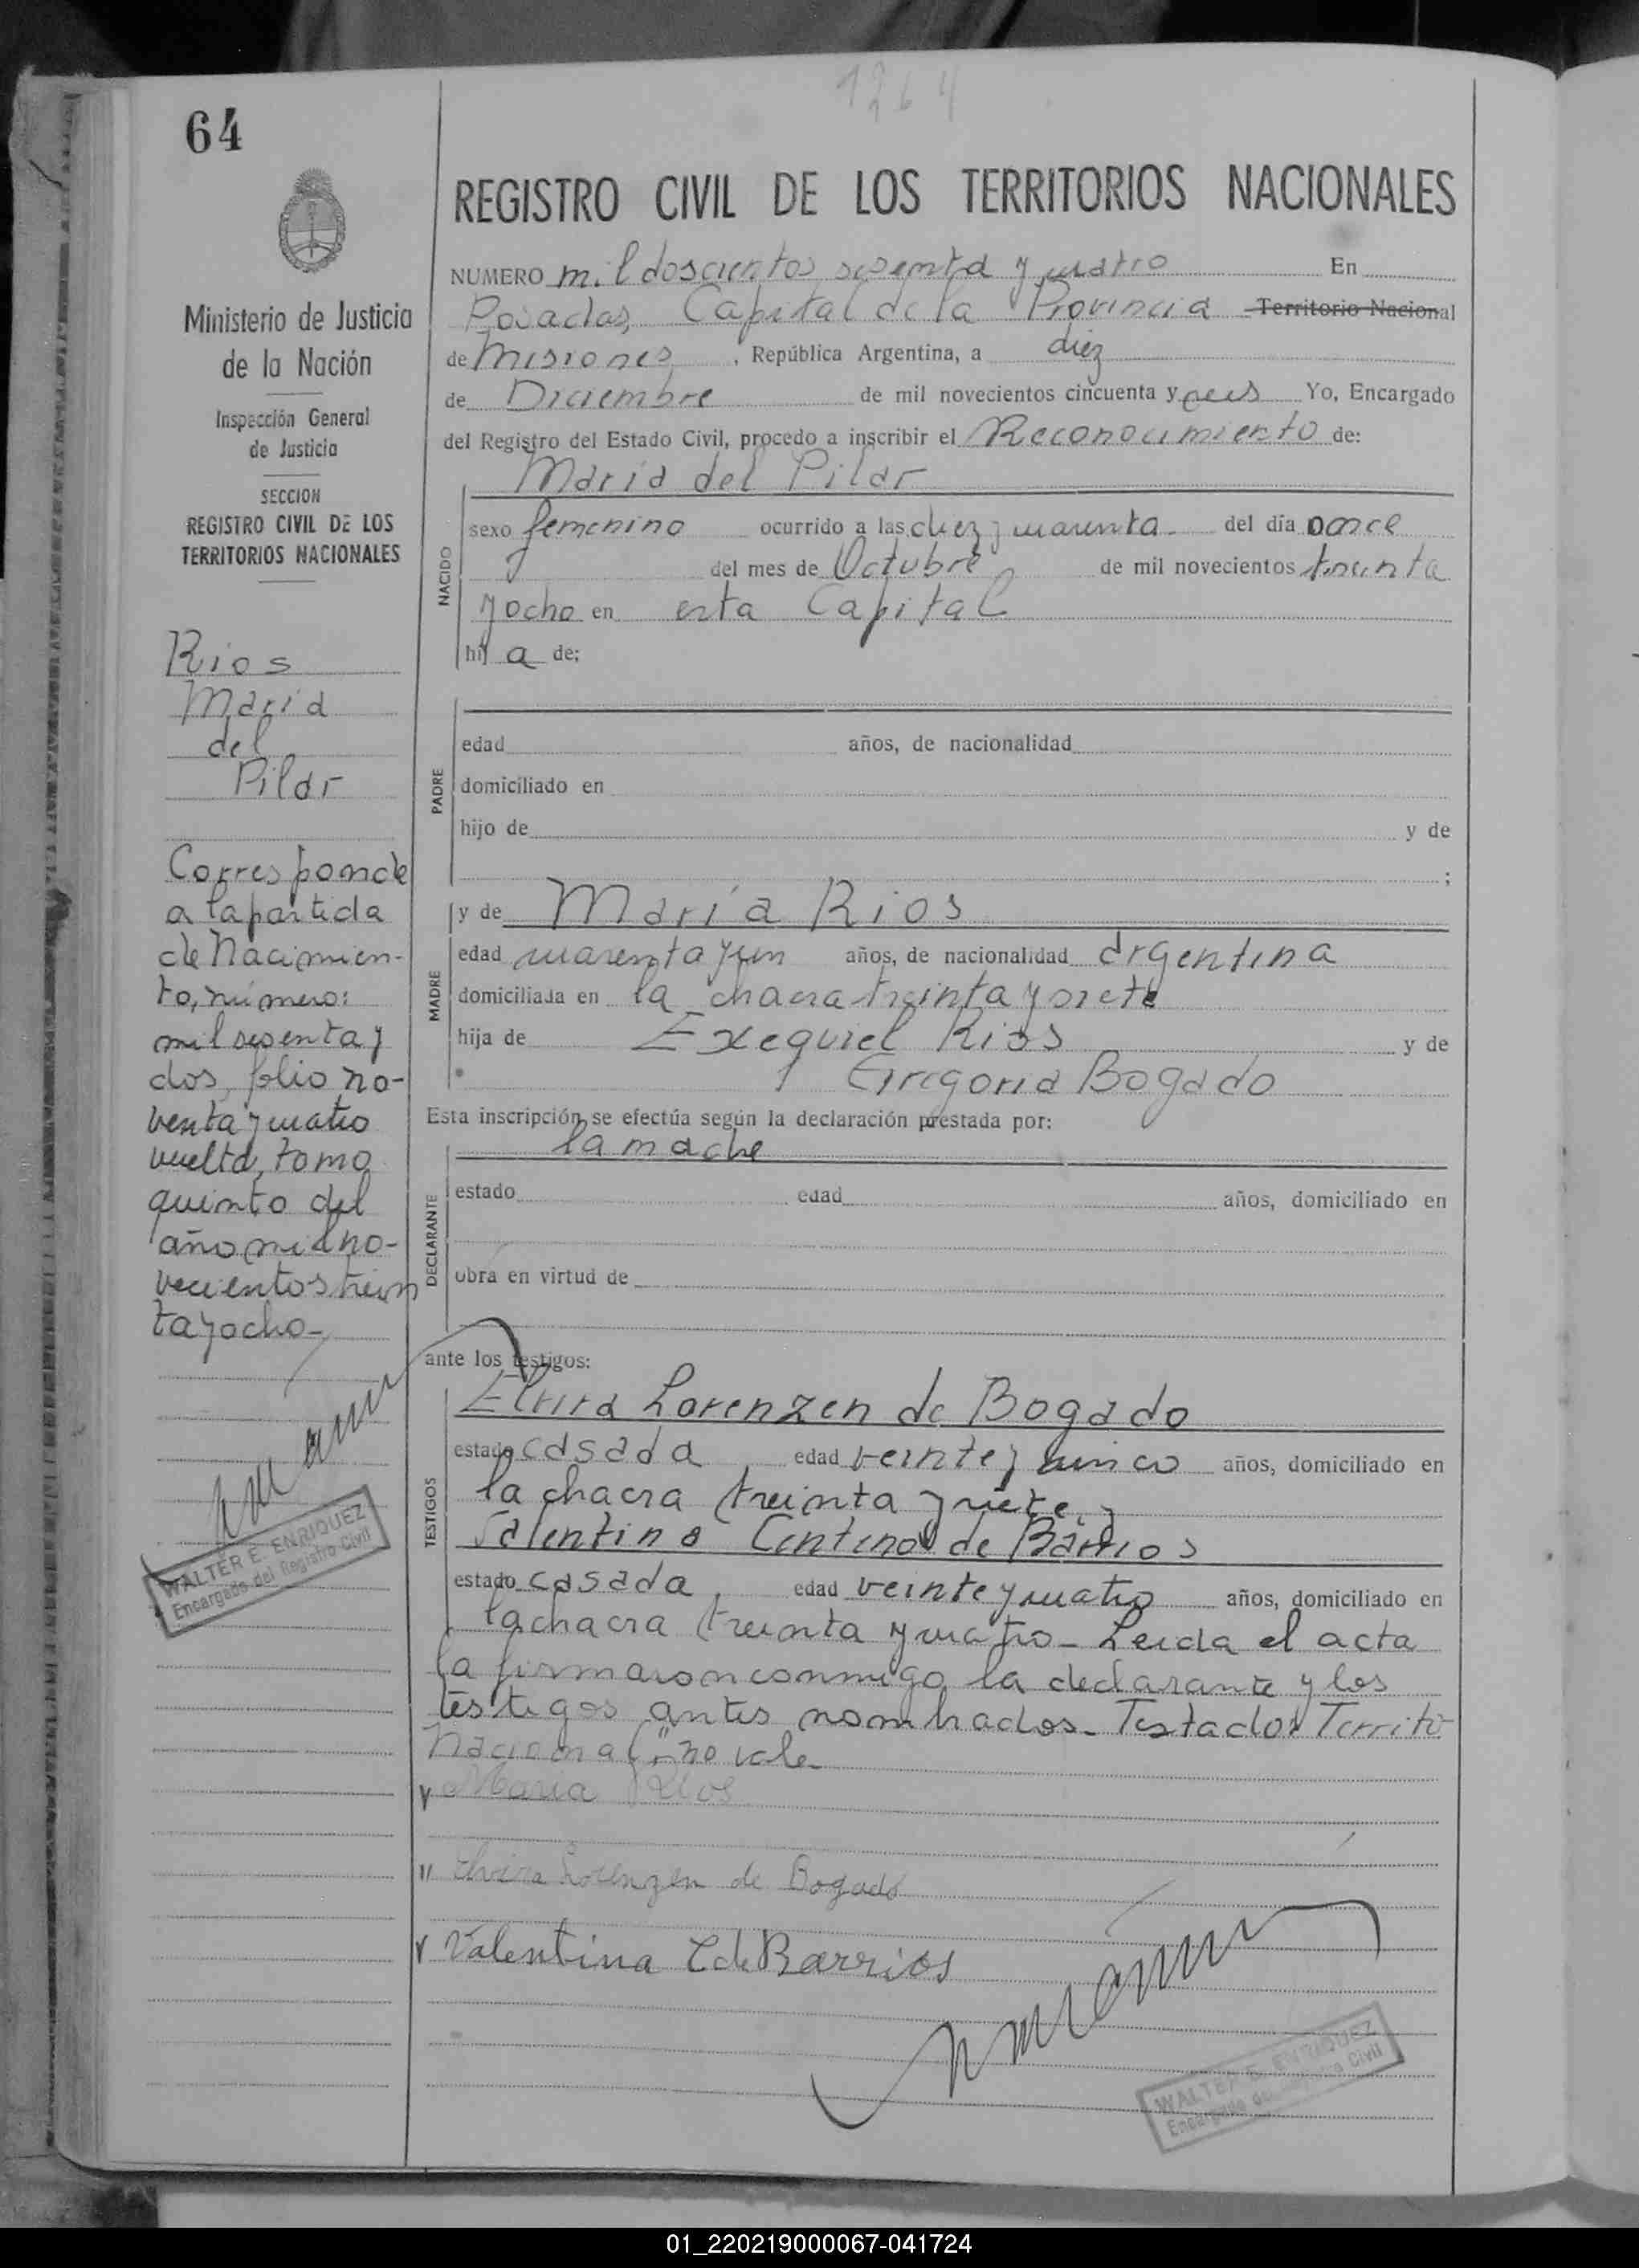 1264
64
REGISTRO CIVIL DE LOS TERRITORIOS NACIONALES
Ministerio de Justicia
de la Nación
Inspección General
de Justicia
SECCION
REGISTRO CIVIL DE LOS
TERRITORIOS NACIONALES
Rios
Maria
del
Pilar
Corresponde
a la partida
de Nacimien-
to, número:
mil sesenta y
dos, folio no-
venta y cuatro
vuelta, tomo
quinto del
año mil no-
vecientos trein
ta y ocho-
WALTER E. ENRIQUEZ
Encargado del Registro Civil
NUMERO mil doscientos sesenta y cuatro En
Posadas, Capital de la Provincia Territorio Nacional
de Misiones, República Argentina, a diez
de Diciembre de mil novecientos cincuenta y seis Yo, Encargado
del Registro del Estado Civil, procedo a inscribir el Reconocimiento de:
Maria del Pilar
NACIDO
sexo femenino ocurrido a las diez y cuarenta del día once
del mes de Octubre de mil novecientos treinta
y ocho en esta Capital
hij a de;
PADRE
edad años, de nacionalidad
domiciliado en
hijo de y de
;
y de María Rios
MADRE
edad cuarenta y un años, de nacionalidad argentina
domiciliada en la chacra treinta y siete
hija de Exequiel Rios y de
Gregoria Bogado
Esta inscripción se efectúa según la declaración prestada por:
la madre
DECLARANTE
estado edad años, domiciliado en
obra en virtud de
ante los testigos:
TESTIGOS
Elvira Lorenzen de Bogado
estado casada edad veinte y cinco años, domiciliado en
la chacra treinta y siete y
Valentina Centeno de Barrios
estado casada, edad veinte y cuatro años, domiciliado en
la chacra treinta y cuatro- Leida el acta
la firmaron conmigo la declarante y los
testigos antes nombrados- Testado: Territo
Nacional" no vale-
Maria Rios
" Elvira Lorenzen de Bogado
Valentina C de Barrios
WALTER E. ENRIQUEZ
Encargado del Registro Civil
01_220219000067-041724